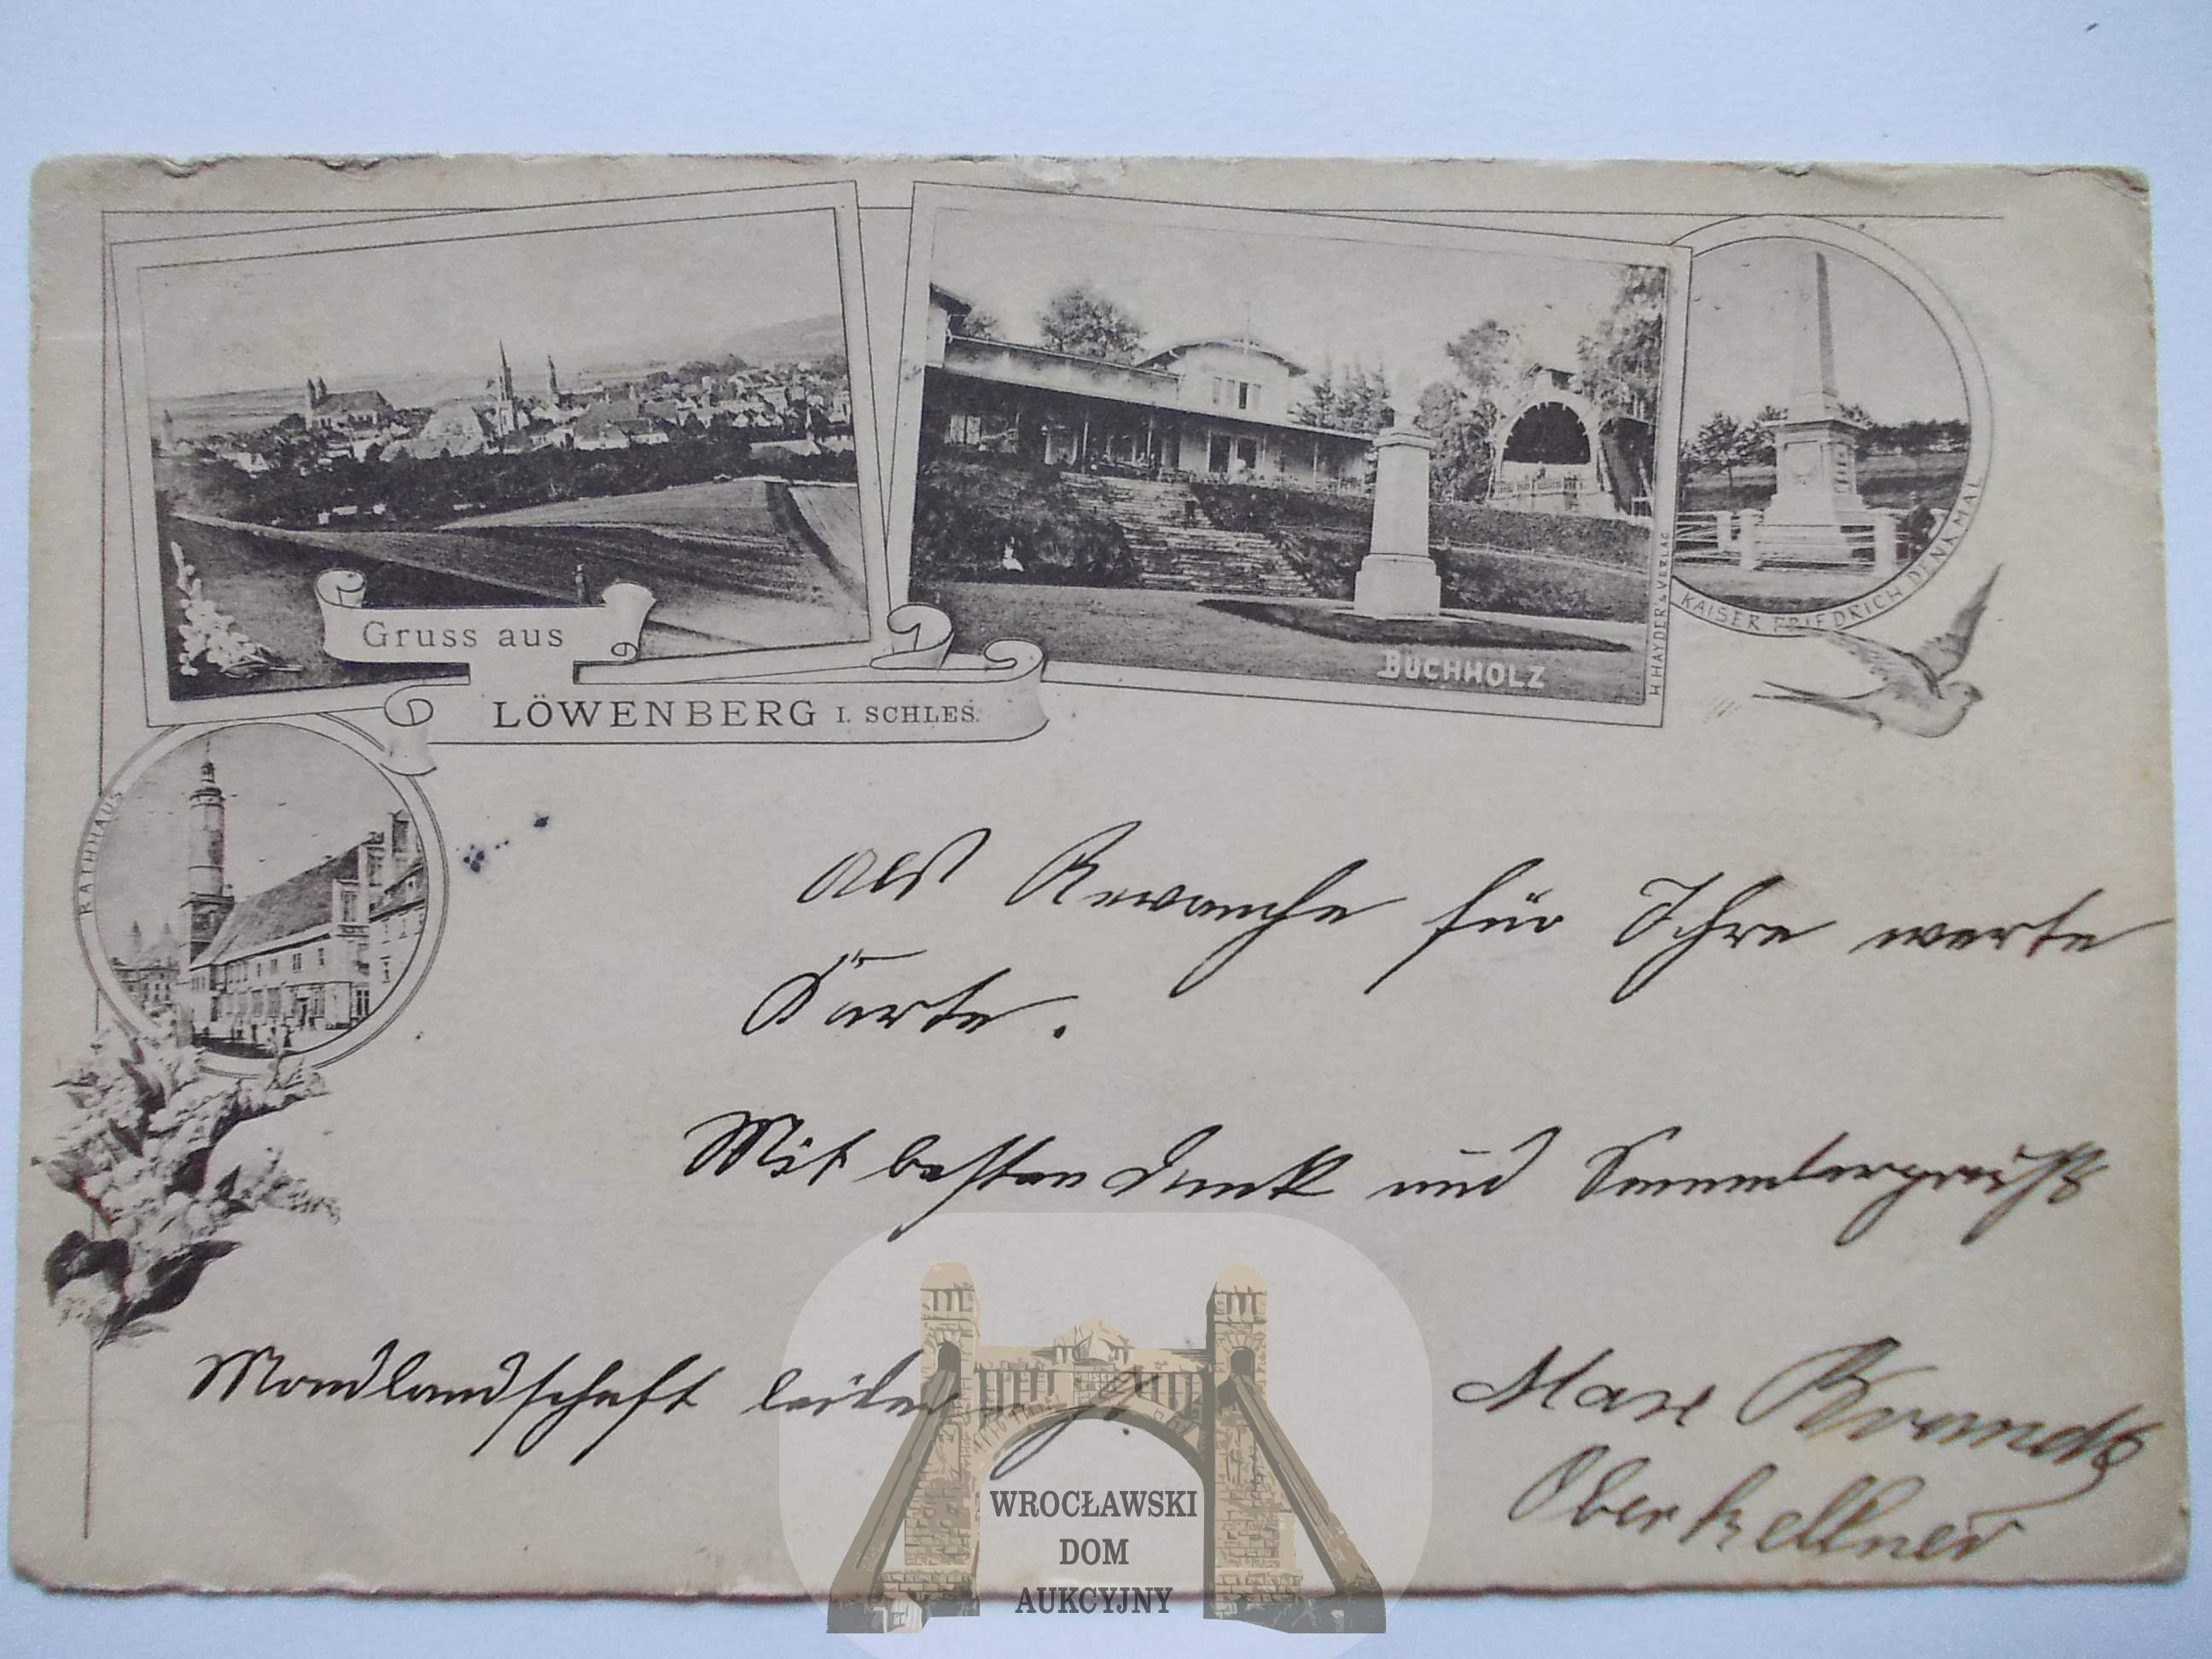 Gruss aus
LÖWENBERG I. SCHLES.
BUCHHOLZ
H. HAYDER'S VERLAG
KAISER FRIEDRICH DENKMAL
RATHHAUS
Als Revanche für Ihre werte
Karte.
Mit besten Dank und Sammlergruß
Mondlandschaft leider
Max Brandt
Oberkellner
WROCŁAWSKI
DOM
AUKCYJNY